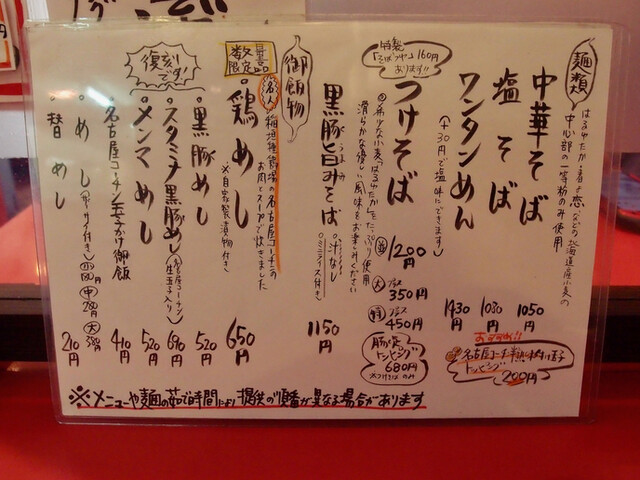 麺類
はるゆたか・春よ恋などの北海道産小麦の
中心部の一等粉のみ使用
中華そば 1050円
塩そば 1080円
ワンタンめん 1430円
(+30円で塩味にできます)
おすすめ!!
名古屋コーチン半熟味付け玉子
トッピング 200円
特製
「そばつゆ」160円
あります!!
つけそば 並 1200円
大 プラス 350円
特 プラス 450円
希少な小麦はるゆたかをたっぷり使用
滑らかな優しい風味をお楽しみください
豚炙
トッピング
680円
※つけそばのみ
黒豚旨みそば 1150円
うまみ
汁なし
ミニライス付き
御飯物
数量
限定品
名人
稲垣種鶏場の名古屋コーチンの
お肉とスープで炊きました
鶏めし 650円
※自家製漬物付き
復刻
です!!
黒豚めし 520円
スタミナ黒豚めし 690円
(名古屋コーチン
生玉子入り)
メンマめし 520円
名古屋コーチン玉子かけ御飯 410円
めし 小 180円 中 280円 大 380円
替めし 210円
※メニューや麺の茹で時間により提供の順番が異なる場合があります